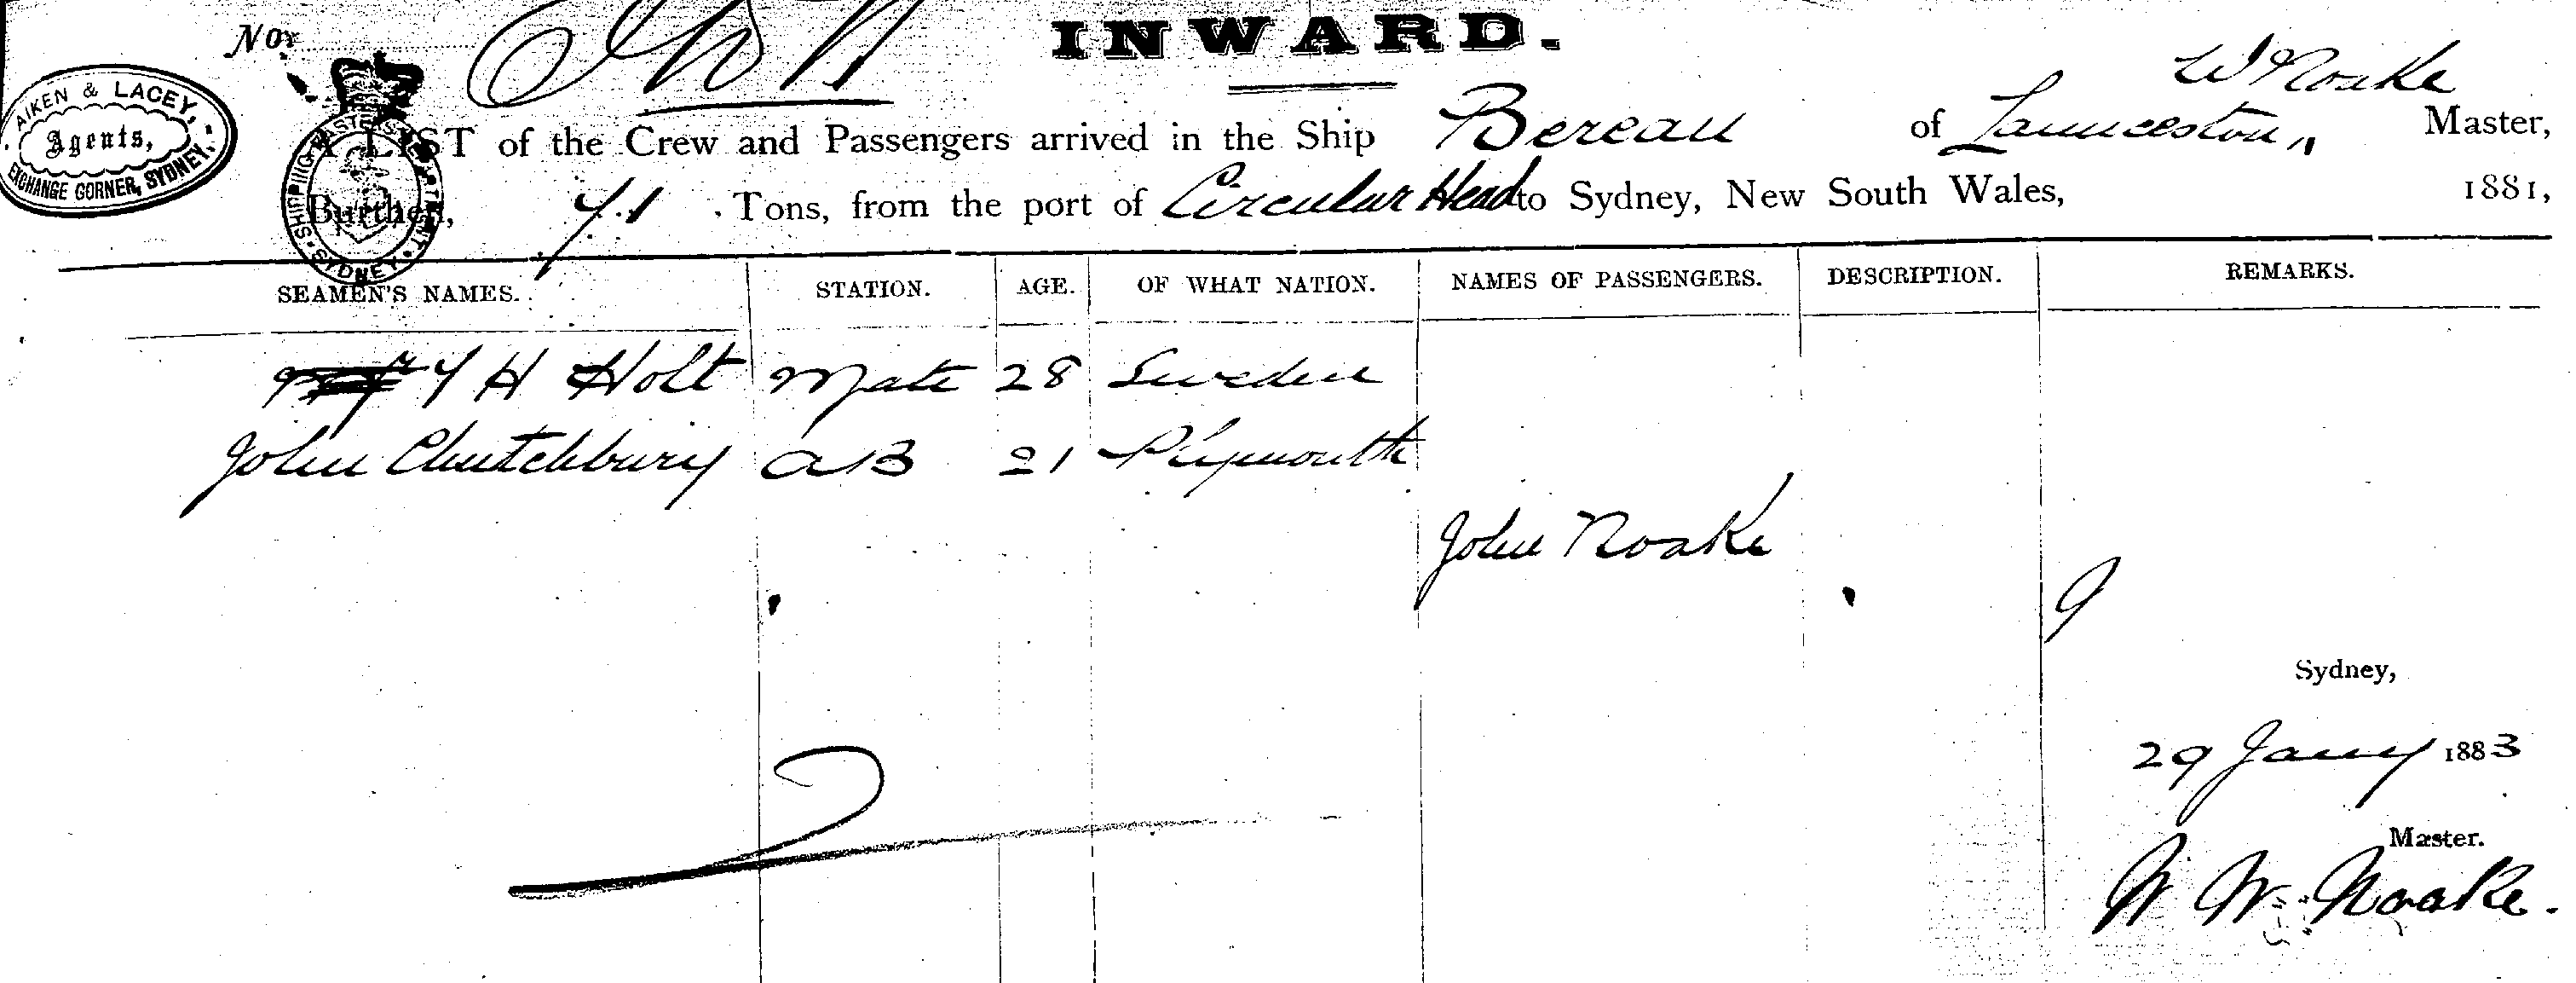 INWARD.
W Noake
AIKEN & LACEY,
Agents,
EXCHANGE CORNER, SYDNEY.
SHIPPING MASTER'S DEPARTMENT SYDNEY
A LIST of the Crew and Passengers arrived in the Ship Bereau of Launceston, Master,
Burthen, 41 Tons, from the port of Circular Head to Sydney, New South Wales, 1881,
SEAMEN'S NAMES. STATION. AGE. OF WHAT NATION. NAMES OF PASSENGERS. DESCRIPTION. REMARKS.
H Holt Mate 28 Sweden
John Clutchbury AB 21 Plymouth
John Noake
Sydney,
29 Jany 1883
Master.
W W. Noake.